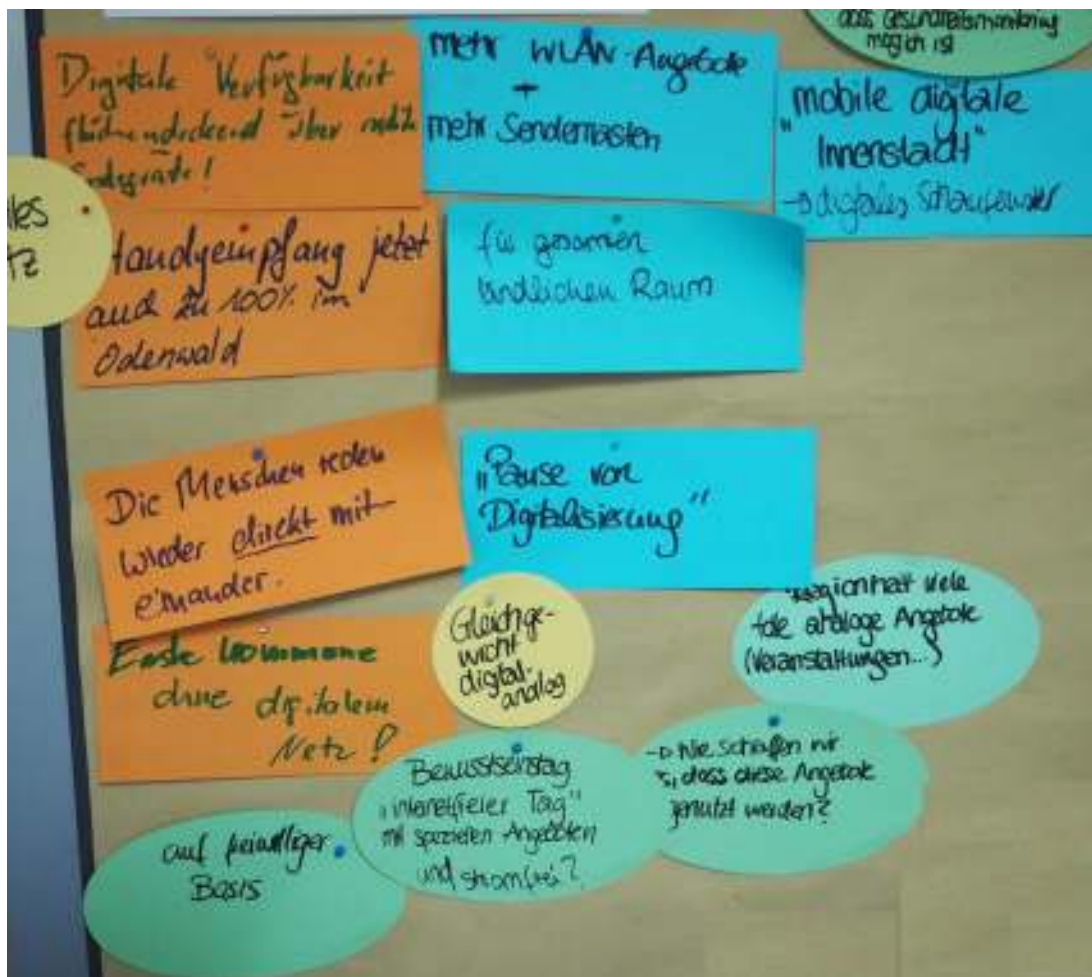 dass Gesundheitsmonitoring
möglich ist
Digitale Verfügbarkeit
flächendeckend über
mehr WLAN-Angebote
+
mehr Sendemasten
"mobile digitale
Innenstadt"
→ digitales Schaufenster
les
TZ
Handyempfang jetzt
auch zu 100% im
Odenwald
für gesamten
ländlichen Raum
Die Menschen reden
wieder direkt mit-
einander.
"Pause von
Digitalisierung"
Erste Kommune
ohne digitalem
Netz!
Gleichge-
wicht
digital-
analog
Region hat viele
tolle analoge Angebote
(Veranstaltungen...)
→ Wie schaffen wir
es, dass diese Angebote
genutzt werden?
Bewusstseinstag
"internetfreier Tag"
mit speziellen Angeboten
und stromfrei?
auf freiwilliger
Basis